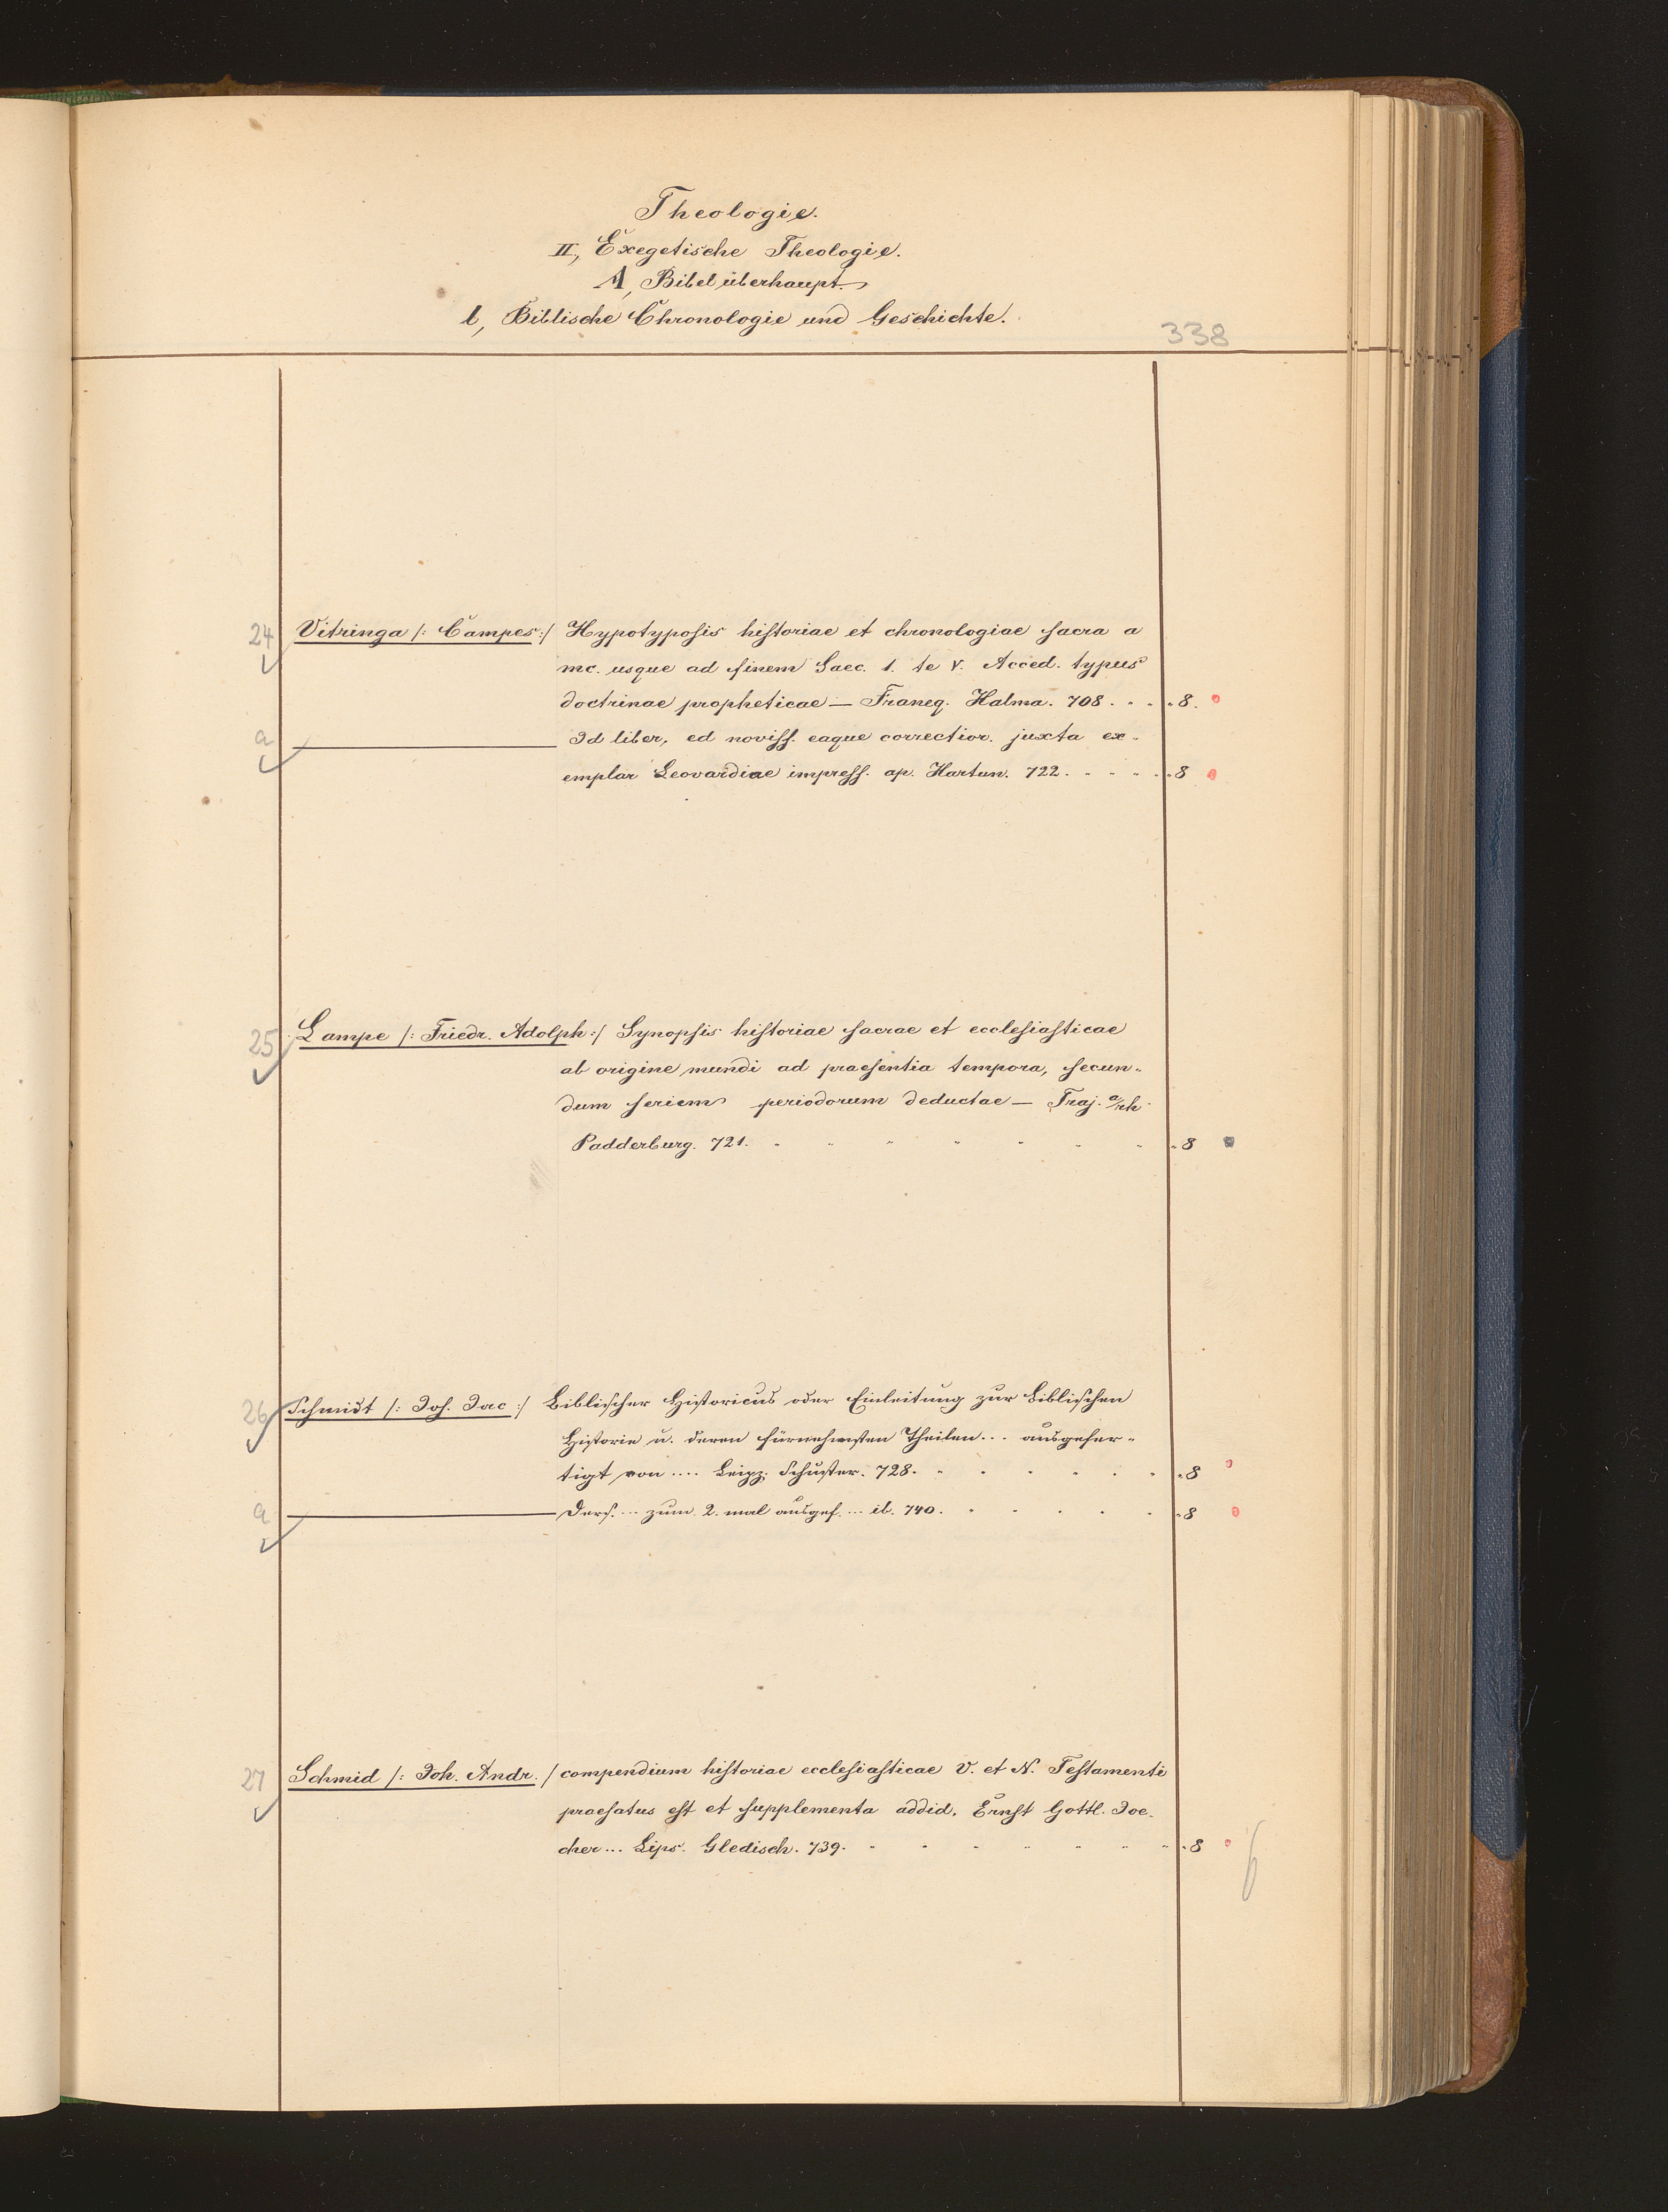 Theologie.
II, Exegetische Theologie.
A, Bibel überhaupt.
b, Biblische Chronologie und Geschichte.
338
24 Vitringa /: Campeg :/ Hypotyposis historiae et chronologiae sacra a
mc. usque ad finem Saec. 1. te V. Acced. typus
doctrinae propheticae — Franeq. Halma. 708. 8.
a Id liber, ed noviss. eaque correctior. juxta ex-
emplar Leovardiae impress. ap. Hartun. 722. 8
25 Lampe /: Friedr. Adolph :/ Synopsis historiae sacrae et ecclesiasticae
ab origine mundi ad praesentia tempora, secun-
dum seriem periodorum deductae — Traj. a/rh
Padderburg. 721. 8
26 Schmidt /: Joh. Jac :/ Biblischer Historicus oder Einleitung zur biblischen
Historie u. deren fürnehmsten Theilen... ausgefer-
tigt von .... Leipz. Schuster. 728. 8
a Ders. ... zum 2. mal ausgef. ... ib. 740. 8
27 Schmid /: Joh. Andr. / compendium historiae ecclesiasticae V. et N. Testamenti
praefatus est et supplementa addid. Ernst Gottl. Joe-
cher ... Lips. Gledisch. 739. 8